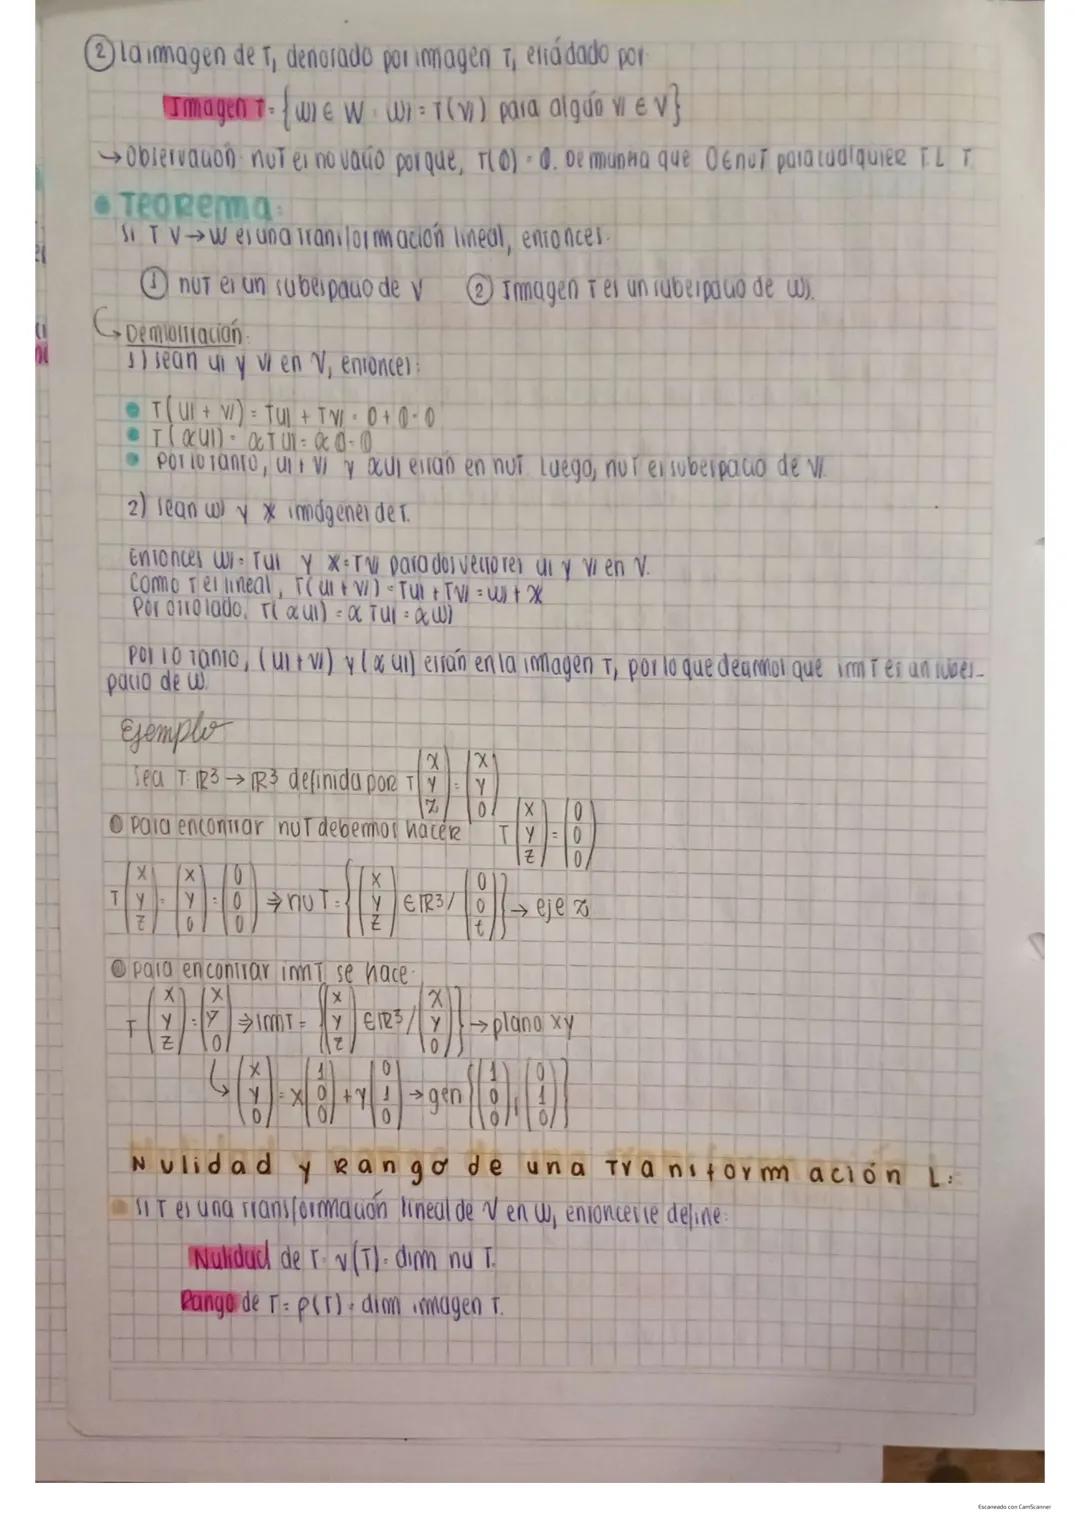 ② La imagen de T, denotado por imagen T, está dado por:
Imagen T = {w ∈ W : w = T(v) para algún v ∈ V}
→ Observación: nuT es no vacío porque, T(0) = 0. De manera que 0 ∈ nuT para cualquier T.L T.
• TEOREMA:
Si T: V → W es una transformación lineal, entonces:
① nuT es un subespacio de V ② Imagen T es un subespacio de W.
↳ Demostración:
1) Sean u y v en V, entonces:
• T(u + v) = Tu + Tv = 0 + 0 = 0
• T(αu) = αTu = α0 = 0
• Por lo tanto, u + v y αu están en nuT. Luego, nuT es subespacio de V.
2) Sean w y x imágenes de T.
Entonces w = Tu y x = Tv para dos vectores u y v en V.
Como T es lineal, T(u + v) = Tu + Tv = w + x
Por otro lado, T(αu) = αTu = αw
Por lo tanto, (u + v) y (αu) están en la imagen T, por lo que decimos que imT es un subes-
pacio de W.
Ejemplo
Sea T: ℝ3 → ℝ3 definida por T(x y z) = (x y 0)
• Para encontrar nuT debemos hacer T(x y z) = (0 0 0)
T(x y z) = (x y 0) = (0 0 0) ⇒ nuT = {(x y z) ∈ ℝ3 / (0 0 t)} → eje z
• Para encontrar imT se hace:
T(x y z) = (x y 0) ⇒ imT = {(x y z) ∈ ℝ3 / (x y 0)} → plano xy
↳ (x y 0) = x(1 0 0) + y(0 1 0) → gen {(1 0 0), (0 1 0)}
Nulidad y Rango de una Transformación L:
• Si T es una transformación lineal de V en W, entonces se define:
Nulidad de T = ν(T) = dim nu T.
Rango de T = ρ(T) = dim imagen T.
Escaneado con CamScanner